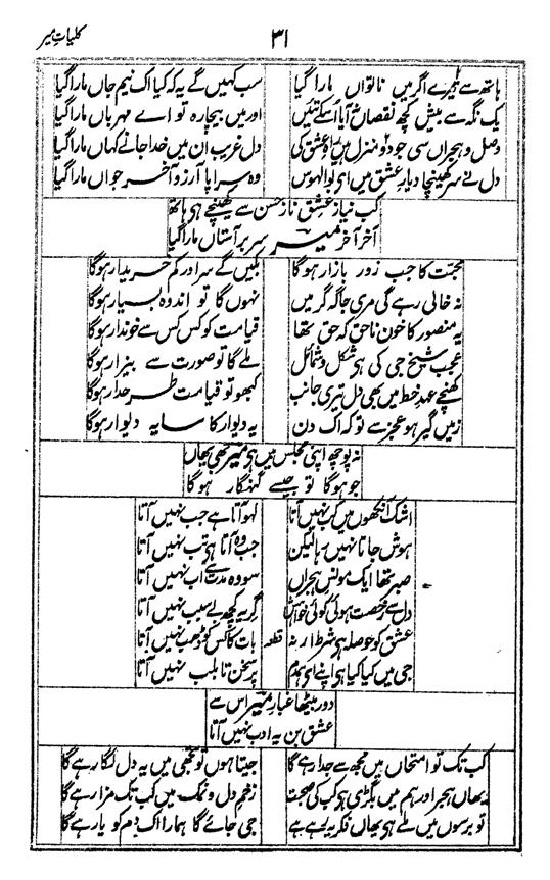 کلیاتِ میر
۳۱
ہاتھ سے تیرے اگر میں ناتواں مارا گیا سب کہیں گے یہ کہ کیا اک نیم جاں مارا گیا
یک نگہ سے بیش کچھ نقصاں نہ آیا اسکے تئیں اور میں بیچارہ تو اے مہرباں مارا گیا
وصل و ہجراں سی جو دو منزل ہیں راہِ عشق کی دل غریب ان میں خدا جانے کہاں مارا گیا
دل نے سر کھینچا دیارِ عشق میں ای بوالہوس وہ سراپا آرزو آخر جواں مارا گیا
کب نیازِ عشق نازِ حسن سے کھینچے ہی ہاتھ
آخر آخر میر سر بر آستاں مارا گیا
محبت کا جب زور بازار ہوگا بکیں گے سر اور کم خریدار ہوگا
نہ خالی رہے گی مری جاگہ گر میں نہوں گا تو اندوہ بسیار ہوگا
یہ منصور کا خون ناحق کہ حق تھا قیامت کو کس کس سے خوندار ہوگا
عجب شیخ جی کی ہی شکل و شمائل ملے گا تو صورت سے بیزار ہوگا
کھنچے عہدِ خط میں بھی دل تیری جانب کبھو تو قیامت طرحدار ہوگا
زمیں گیر ہو عجز سے تو کہ اک دن یہ دیوار کا سایہ دیوار ہوگا
نہ پوچھ اپنی مجلس میں ہی میر بھی یھاں
جو ہوگا تو جیسے گنہگار ہوگا
اشک آنکھوں میں کب نہیں آتا لہو آتا ہے جب نہیں آتا
ہوش جاتا نہیں رہا لیکن جب وہ آتا ہی تب نہیں آتا
صبر تھا ایک مونسِ ہجراں سو وہ مدت سے اب نہیں آتا
دل سے رخصت ہوئی کوئی خواہش گریہ کچھ بے سبب نہیں آتا
عشق کو حوصلہ ہی شرط ار نہ قطعہ بات کا کس کو ڈھب نہیں آتا
جی میں کیا کیا ہی اپنے ای ہمدم پر سخن تا بلب نہیں آتا
دور بیٹھا غبارِ میر اس سے
عشق بن یہ ادب نہیں آتا
کب تک تو امتحاں میں مجھ سے جدا رہے گا جیتا ہوں تو تجھی میں یہ دل لگا رہے گا
یھاں ہجر اور ہم میں بگڑی ہی کب کی صحبت زخمِ دل و نمک میں کب تک مزا رہے گا
تو برسوں میں ملے ہی یھاں فکر یہ رہے ہے جی جائے گا ہمارا اک دم کو یا رہے گا